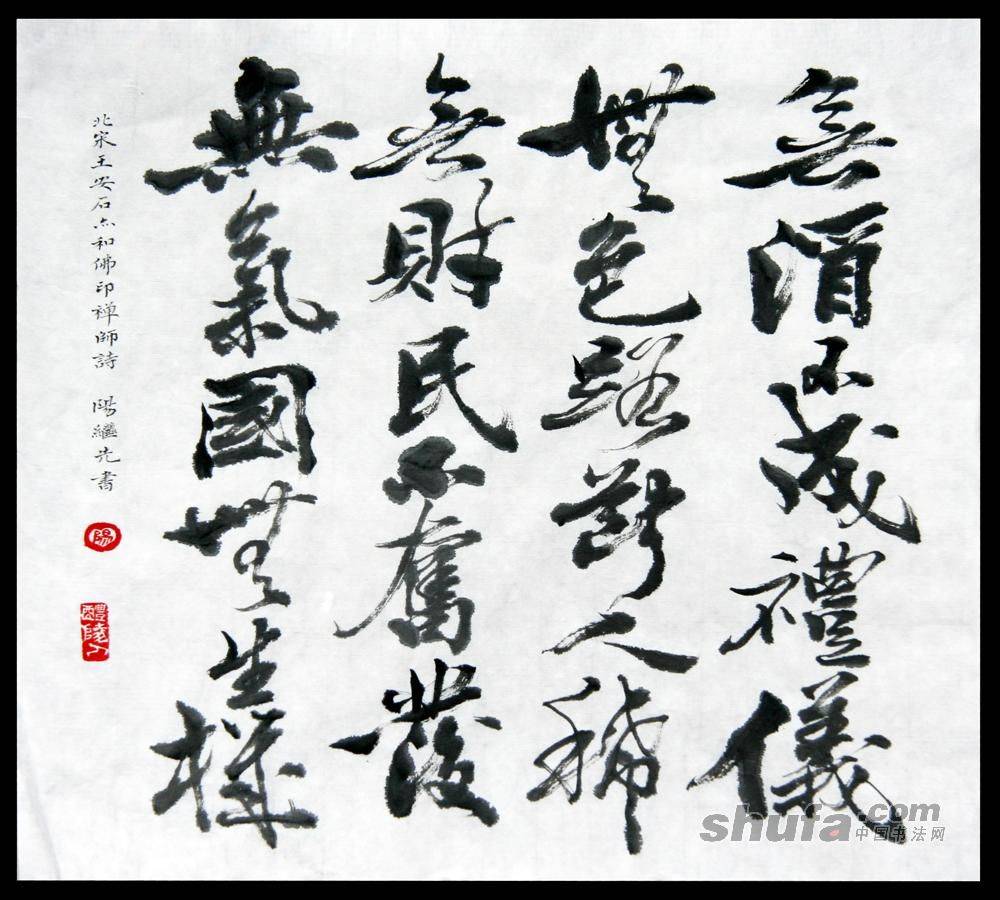 無酒不成禮儀
無色路斷人稀
無財民不奮發
無氣國無生機
北宋王安石亦和佛印禪師詩 陽繼先書
陽
醴陵人
shufa.com
中国书法网